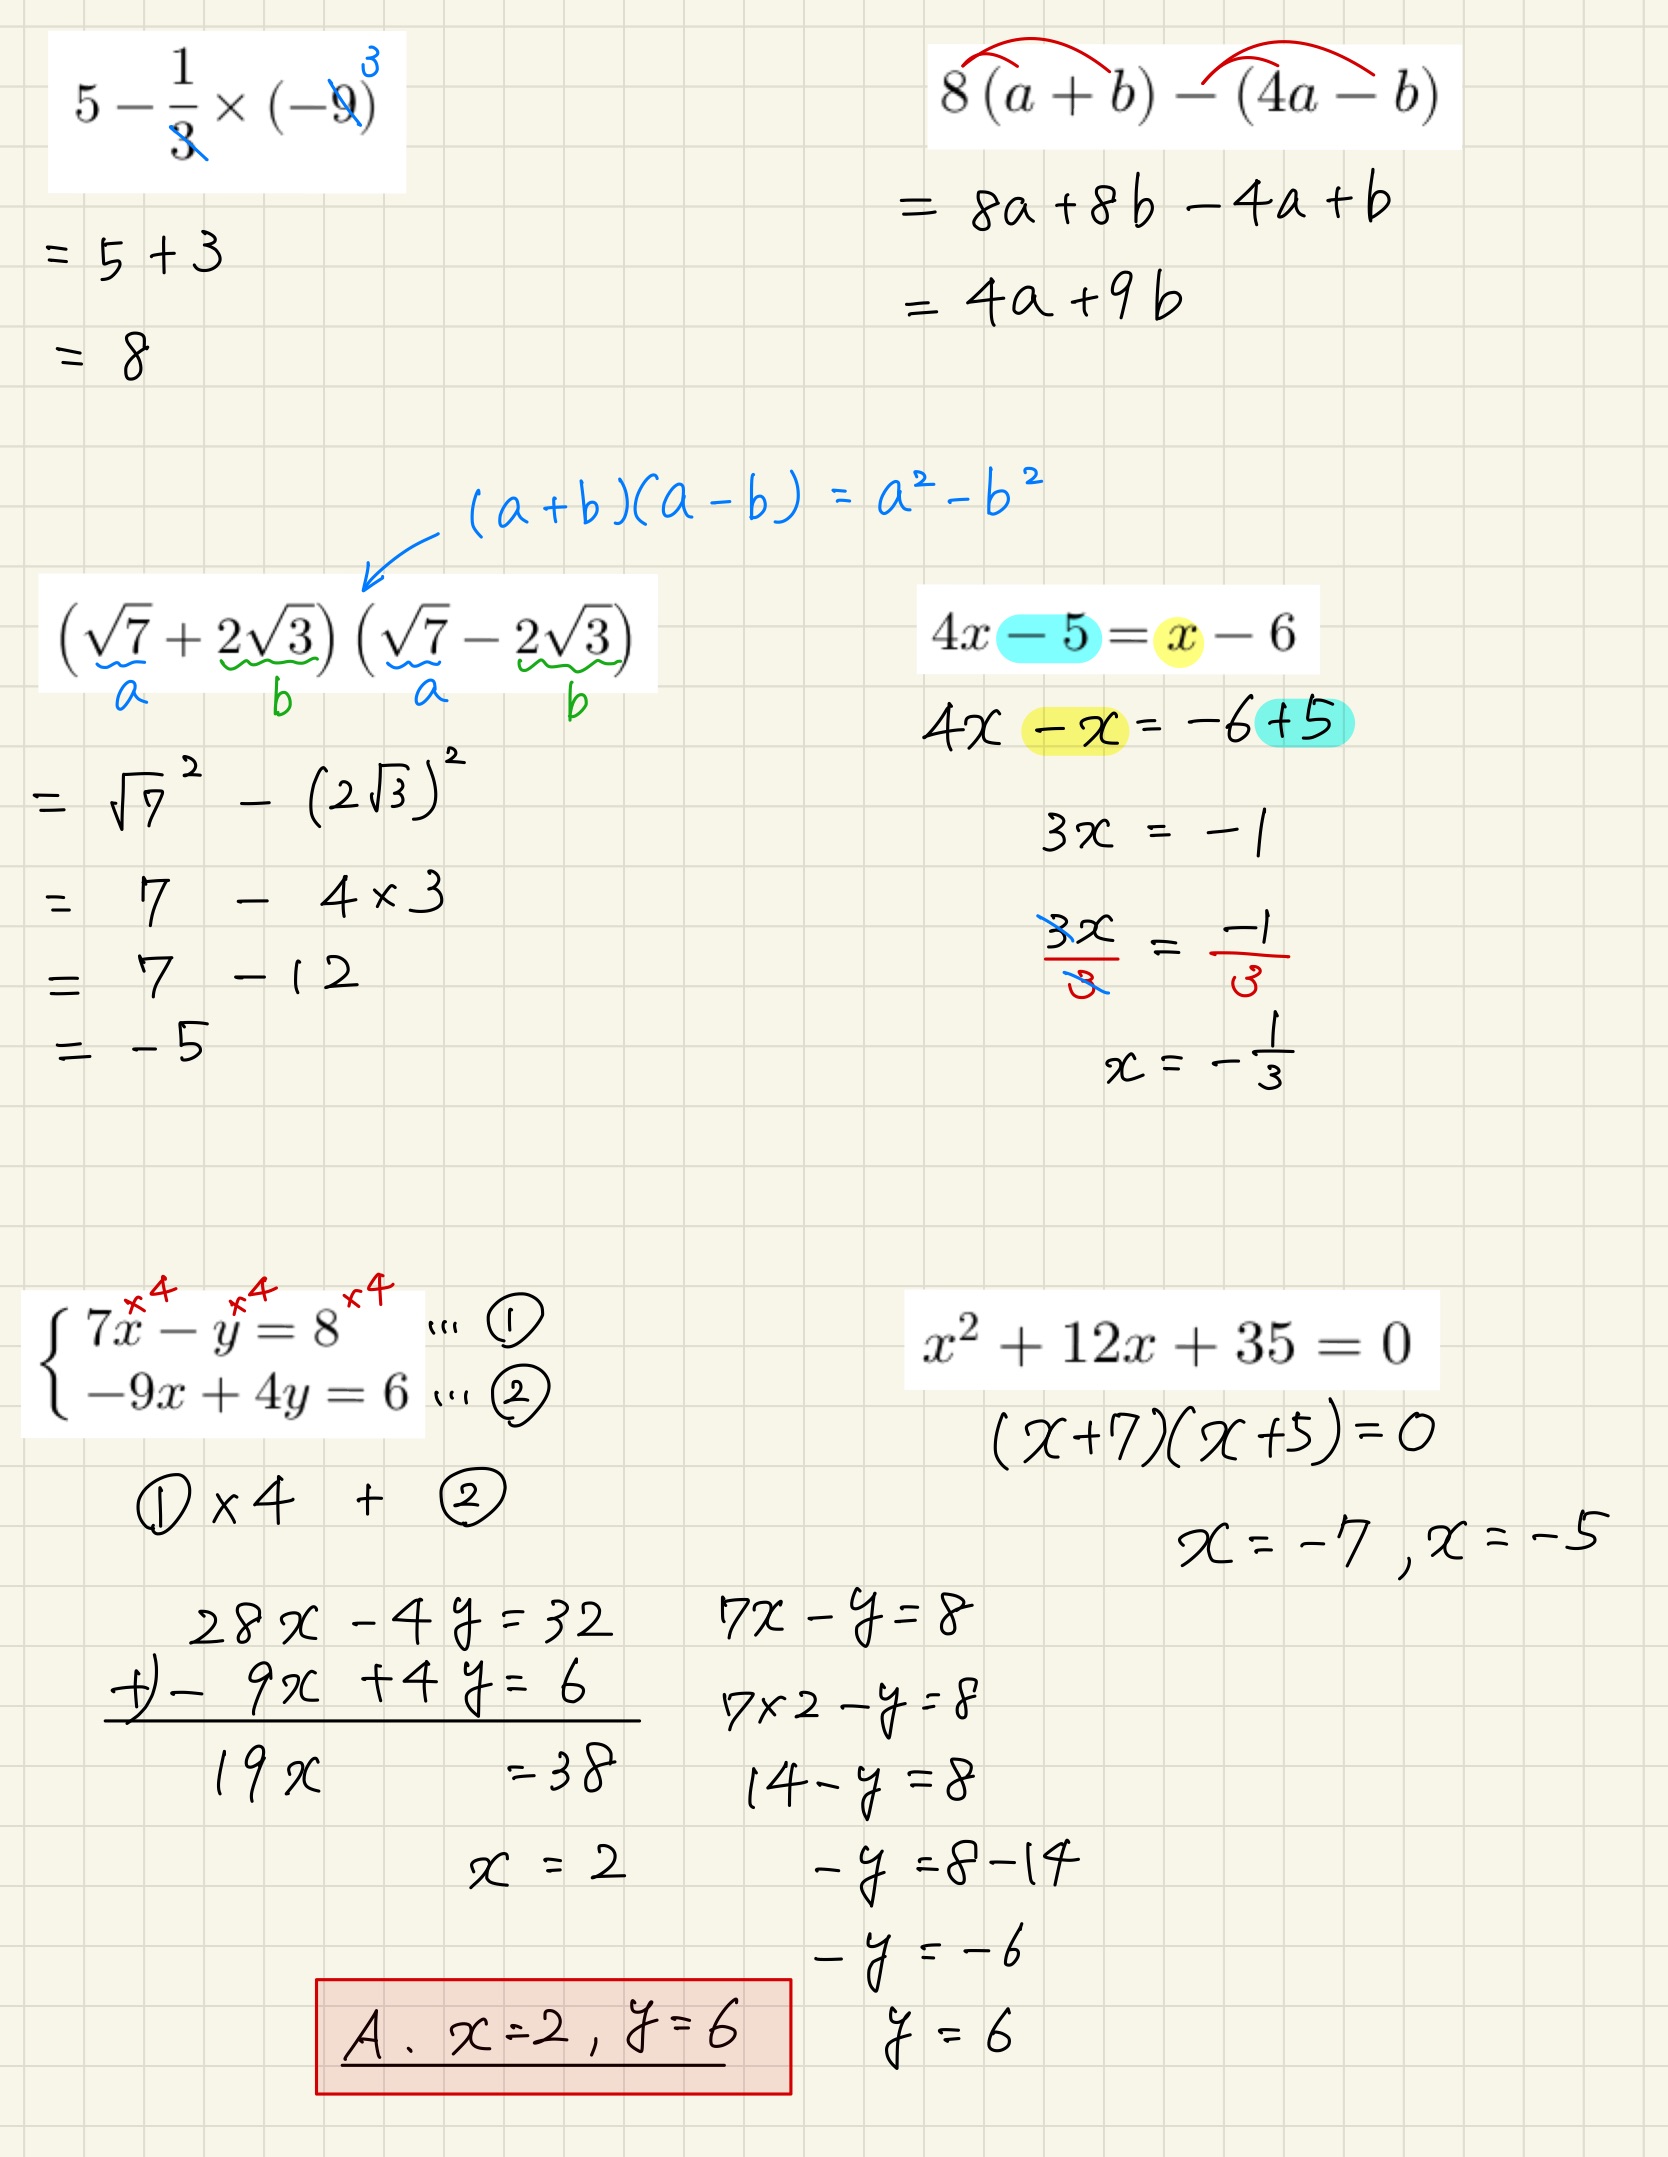 5 − 1/3 × (−9) 3
= 5 + 3
= 8
8 (a + b) − (4a − b)
= 8a + 8b − 4a + b
= 4a + 9b
(a + b)(a − b) = a² − b²
(√7 + 2√3) (√7 − 2√3)
a b a b
= √7² − (2√3)²
= 7 − 4 × 3
= 7 − 12
= −5
4x − 5 = x − 6
4x − x = −6 + 5
3x = −1
3x/3 = −1/3
x = −1/3
×4 ×4 ×4
7x − y = 8 … ①
−9x + 4y = 6 … ②
① × 4 + ②
28x − 4y = 32
+) − 9x + 4y = 6
19x = 38
x = 2
7x − y = 8
7 × 2 − y = 8
14 − y = 8
−y = 8 − 14
−y = −6
y = 6
A. x = 2, y = 6
x² + 12x + 35 = 0
(x + 7)(x + 5) = 0
x = −7, x = −5